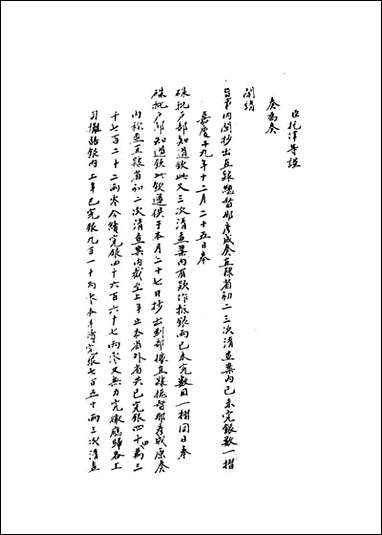 臣托津等謹
奏為奏
聞請
旨事內閣抄出直隸總督那彥成奏直隸省初二三次清查案內已未完銀數一摺
嘉慶十九年十二月二十五日奉
硃批戶部知道欽此又三次清查案內有款作抵銀兩已未完數目一摺同日奉
硃批戶部知道欽此欽遵俱于本月二十七日抄出到部據直隸總督那彥成原奏
內稱查直隸省初二次清查案內截至上年止本省外省共已完銀四十四萬三
千七百二十二兩零今續完銀四千六百六十七兩零又無力完繳應歸各上
司攤賠銀內上年已完銀九百一十兩零本年續完銀七百五十兩三次清查